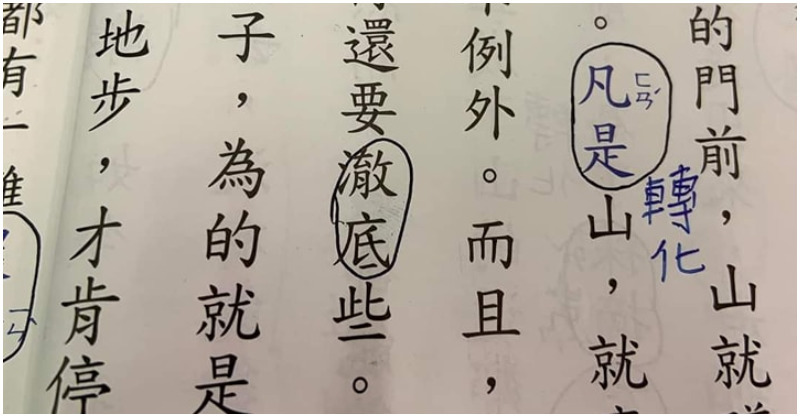 的門前，山就
轉化
。凡是山，就
ㄈㄢˊ
例外。而且，
還要澈底些。
子，為的就是
地步，才肯停
都有一